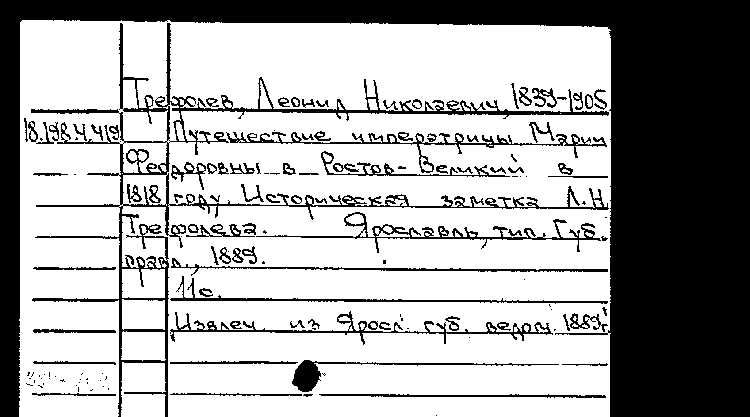 Трефолев, Леонид Николаевич, 1839-1905
18.198.4.419 Путешествие императрицы Марии
Феодоровны в Ростов-Великий в
1818 году. Историческая заметка Л.Н.
Трефолева. Ярославль, тип. Губ.
правл., 1889.
11с.
Извлеч. из Яросл. губ. ведом. 1889г.